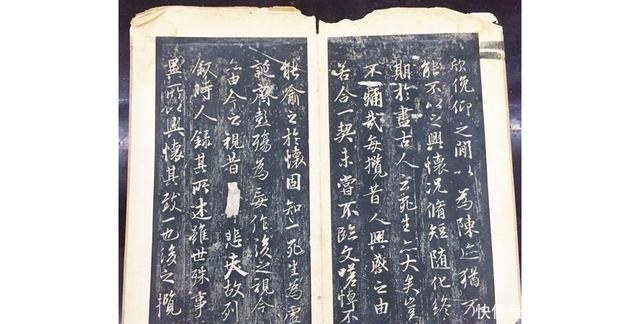 欣俛仰之閒以為陳迹猶不
能不以之興懷況脩短随化終
期於盡古人云死生亦大矣豈
不痛哉每攬昔人興感之由
若合一契未嘗不臨文嗟悼不
能喻之於懷固知一死生為虛
誕齊彭殤為妄作後之視今
亦由今之視昔悲夫故列
叙時人録其所述雖世殊事
異所以興懷其致一也後之攬
快传号